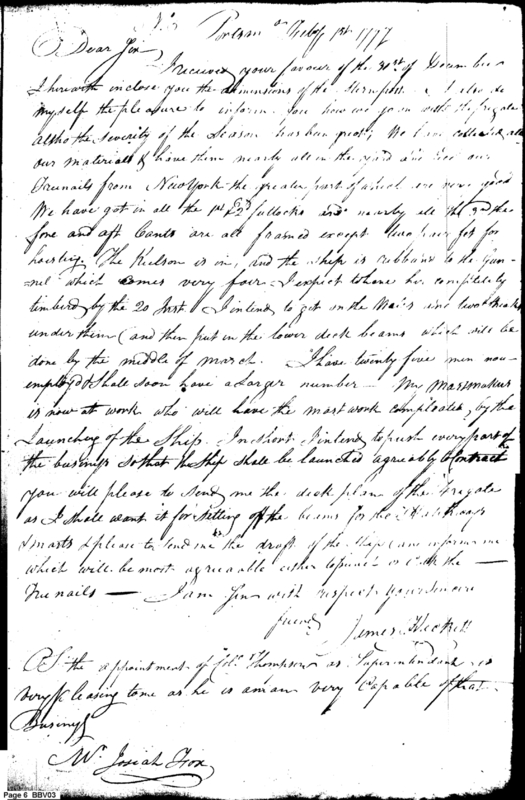 Portsmo Feby 1st 1797
Dear Sir
I received your favour of the 21st of Decembr
I herewith inclose you the dimensions of the Sternpost & I also do
myself the pleasure to inform you how we go on with the frigate
altho the severity of the Season has been great, We have collected all
our materials & have them nearly all in the yard and our
Trunails from New York the greater part of which are very good
We have got in all the 1st & 2d futtocks and nearly all the 3rd the
fore and aft Cants are all framed except two pair fit for
hoisting The Kelson is in, and the ship is ribband to the Gun-
nel which comes very fair I expect to have her compleatly
timberd by the 20 Inst I intend to get on the Wales and two Streaks
under them (and then put in the lower deck beams which will be
done by the middle of march I have twenty five men now
employd & shall soon have a larger number My mastmaker
is now at work who will have the mast work compleated by the
Launching of the Ship. In short I intend to push every part of
the business so that the ship shall be launched agreeably to Contract
you will please to send me the deck plan of the frigate
as I shall want it for setting off the beams for the Hatchways
& masts & please to send me the draft of the Ship and inform me
which will be most agreeable either to or the
Trunails I am Sir with respect your sincere
friend
James Hackett
PS the appointment of Thompson as Superintendant is
very pleasing to me as he is a man very Capable of that
Business
Mr Josiah Fox
Page 6 BBV03